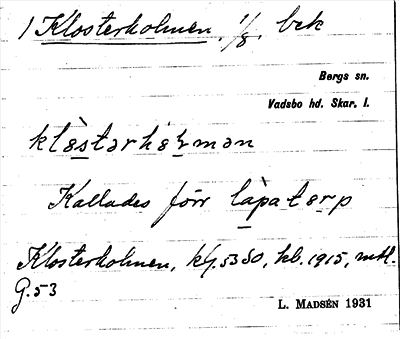 1 Klosterholmen, 1/8, bek
Bergs sn.
Vadsbo hd. Skar. l.
klɵ̀starhɵlman
Kallades förr làpatɵrp
Klosterholmen, kf. 53 SO, hb. 1915, mtl.
G. 53
L. MADSÉN 1931